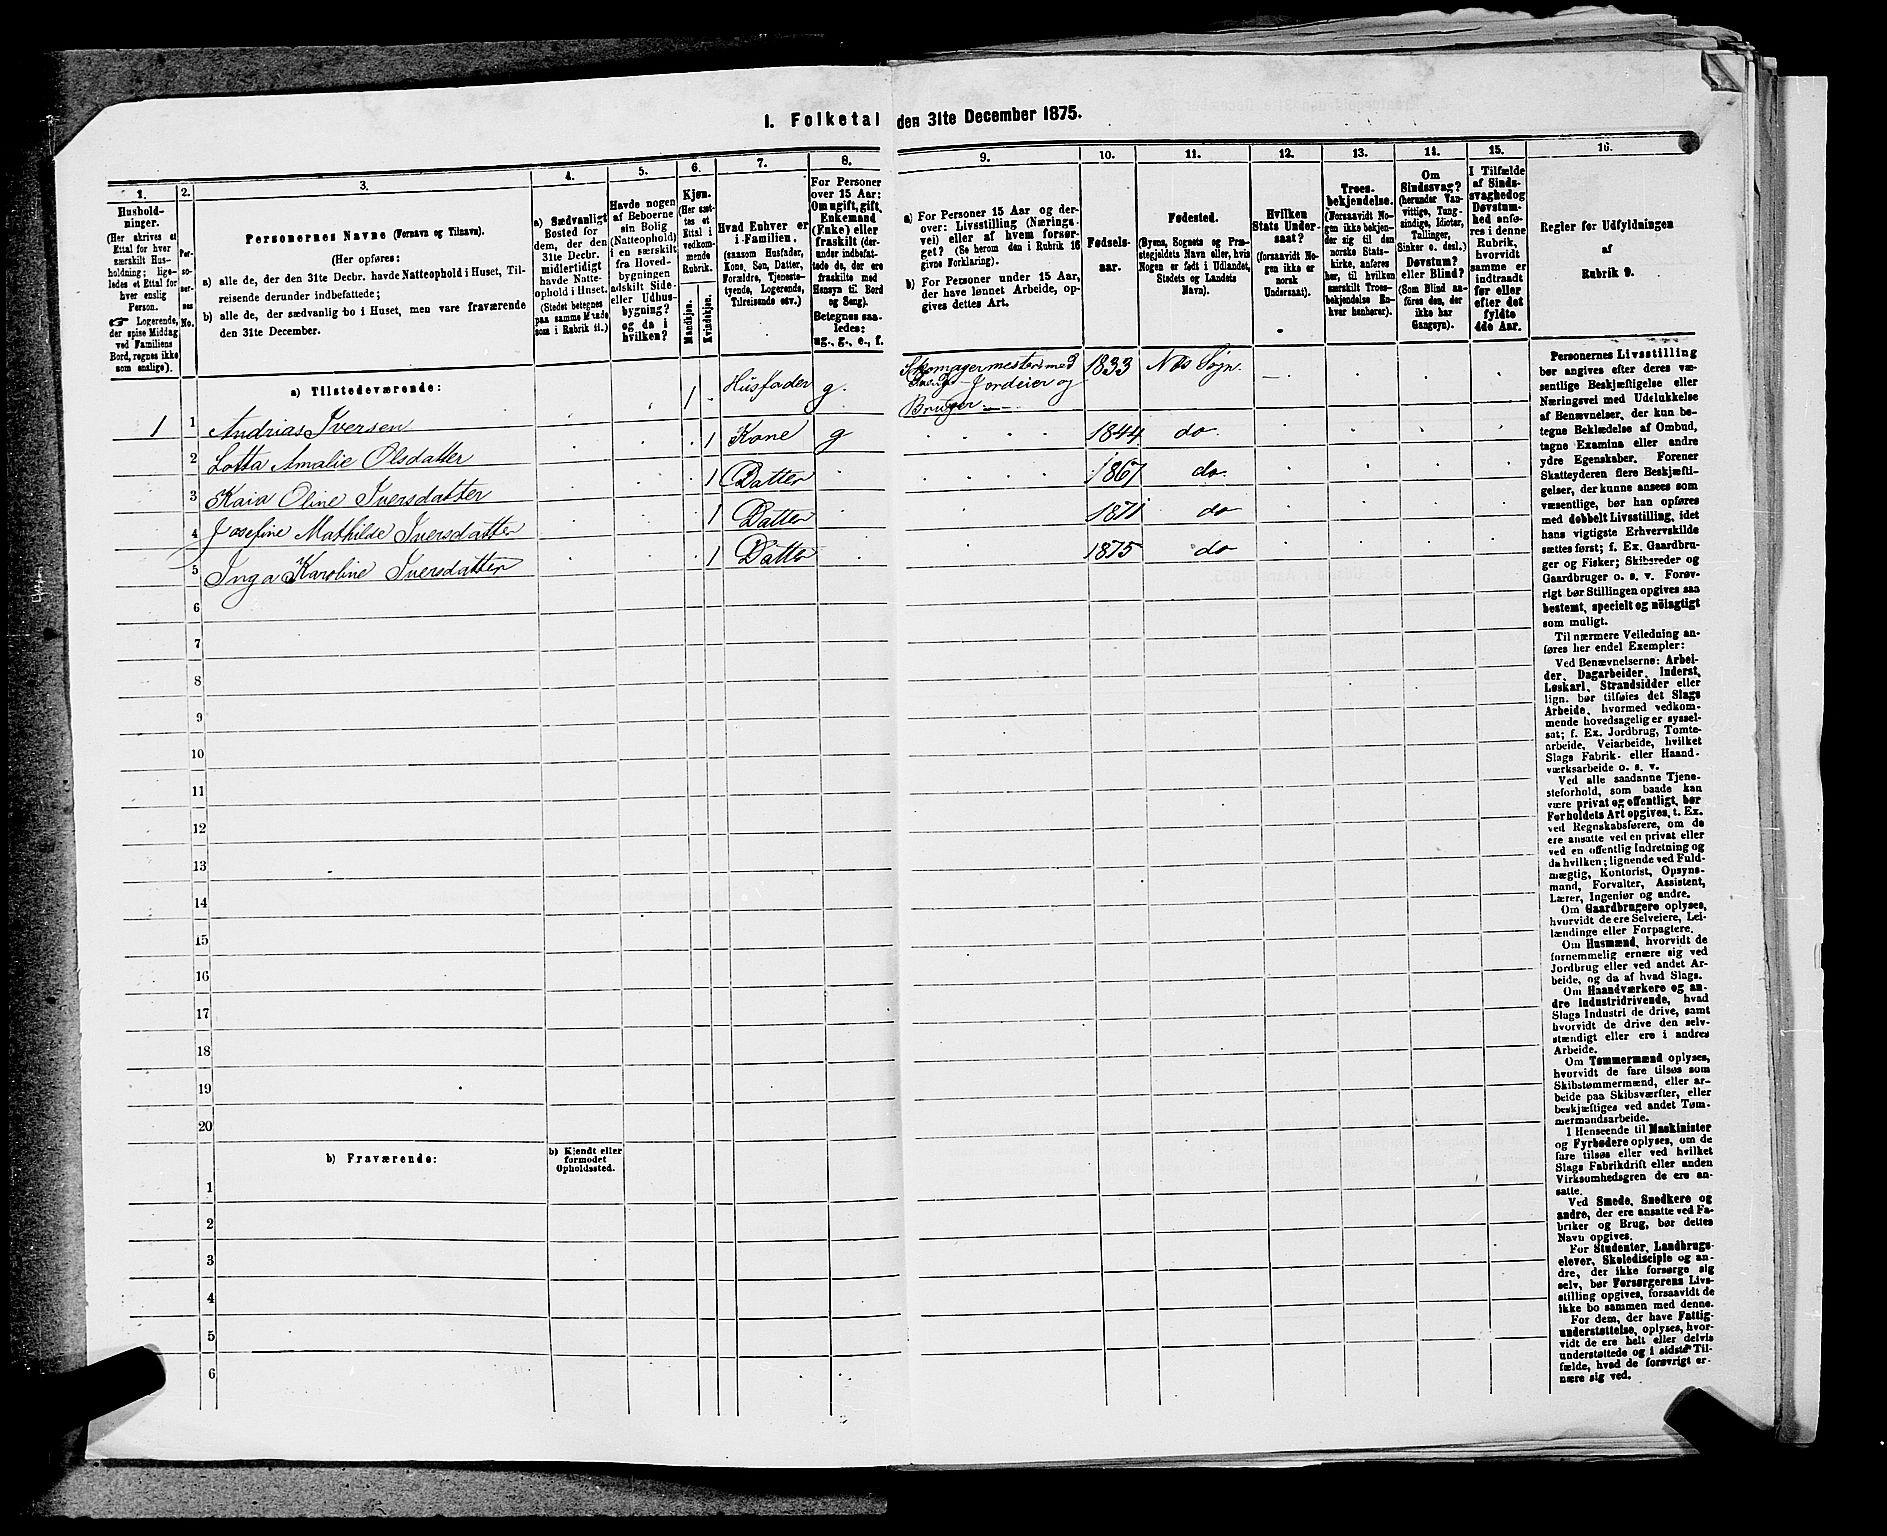 I. Folketal den 31te December 1875.
1.
Hushold-
ninger.
(Her skrives et
Ettal for hver
særskilt Hus-
holdning; lige-
ledes et Ettal for
hver enslig
Person.
☞ Logerende,
der spise Middag
ved Familiens
Bord, regnes ikke
som enslige).
2.
Per-
so-
ner-
nes
No.
3.
Personernes Navne (Fornavn og Tilnavn).
(Her opføres:
a) alle de, der den 31te Decbr. havde Natteophold i Huset, Til-
reisende derunder indbefattede;
b) alle de, der sædvanlig bo i Huset, men vare fraværende
den 31te December.
4.
a) Sædvanligt
Bosted for
dem, der den
31te Decbr.
midlertidigt
havde Natte-
ophold i Huset.
(Stedet betegnes
paa samme Maade
som i Rubrik 11.)
5.
Havde nogen
af Beboerne
sin Bolig
(Natteophold)
i en særskilt
fra Hoved-
bygningen
adskilt Side-
eller Udhus-
bygning?
og da i
hvilken?
6.
Kjøn.
(Her sæt-
tes et
Ettal i
vedkom-
mende
Rubrik.
Mandkjøn.
Kvindekjøn.
7.
Hvad Enhver er
i Familien.
(saasom Husfader,
Kone, Søn, Datter,
Forældre, Tjeneste-
tyende, Logerende,
Tilreisende osv.)
8.
For Personer
over 15 Aar:
Om ugift, gift,
Enkemand
(Enke) eller
fraskilt (der-
under indbefat-
tede de, der ere
fraskilte med
Hensyn til Bord
og Seng).
Betegnes saa-
ledes:
ug., g., e., f.
9.
a) For Personer 15 Aar og der-
over: Livsstilling (Nærings-
vei) eller af hvem forsør-
get? (Se herom den i Rubrik 16
givne Forklaring).
b) For Personer under 15 Aar,
der have lønnet Arbeide, op-
gives dettes Art.
10.
Fødsels-
aar.
11.
Fødested.
(Byens, Sognets og Præ-
stegjeldets Navn eller, hvis
Nogen er født i Udlandet,
Stedets og Landets
Navn).
12.
Hvilken
Stats Under-
saat?
(forsaavidt No-
gen ikke er
norsk
Undersaat).
13.
Troes-
bekjendelse.
(Forsaavidt No-
gen ikke bekjen-
der sig til den
norske Stats-
kirke, anføres
her, til hvilken
særskilt Troes-
bekjendelse En-
hver henhører).
14.
Om
Sindssvag?
(herunder Van-
vittige, Tung-
sindige, Idioter,
Tullinger,
Sinker o. desl.)
Døvstum?
eller Blind?
(Som Blind an-
føres den, der
ikke har
Gangsyn).
15.
I Tilfælde
af Sinds-
svaghed og
Døvstum-
hed anfø-
res i denne
Rubrik,
hvorvidt
samme er
indtraadt
før eller
efter det
fyldte
4de Aar.
16.
Regler for Udfyldningen
af
Rubrik 9.
a) Tilstedeværende:
1 1 Andrias Iversen 1 Husfader g. Skomagermester med
Jordeier og
Bruger 1833 Næs Sogn
2 Lotta Amalie Olsdatter 1 Kone g 1844 do.
3 Kaia Oline Iversdatter 1 Datter 1867 do.
4 Josefine Mathilde Iversdatter 1 Datter 1871 do
5 Inga Karoline Iversdatter 1 Datter 1875 do
6
7
8
9
10
11
12
13
14
15
16
17
18
19
20
b) Fraværende:
b) Kjendt eller
formodet
Opholdssted.
1
2
3
4
5
6
Personernes Livsstilling
bør angives efter deres væ-
sentlige Beskjæftigelse eller
Næringsvei med Udelukkelse
af Benævnelser, der kun be-
tegne Beklædelse af Ombud,
tagne Examina eller andre
ydre Egenskaber. Forener
Skatteyderen flere Beskjæfti-
gelser, der kunne ansees som
væsentlige, bør han opføres
med dobbelt Livsstilling, idet
hans vigtigste Erhvervskilde
sættes først; f. Ex. Gaardbru-
ger og Fisker; Skibsreder og
Gaardbruger o. s. v. Forøv-
rigt bør Stillingen opgives saa
bestemt, specielt og nøiagtigt
som muligt.
Til nærmere Veiledning an-
føres her endel Exempler:
Ved Benævnelserne: Arbei-
der, Dagarbeider, Inderst,
Løskarl, Strandsidder eller
lign. bør tilføies det Slags
Arbeide, hvormed vedkom-
mende hovedsagelig er syssel-
sat; f. Ex. Jordbrug, Tomte-
arbeide, Veiarbeide, hvilket
Slags Fabrik- eller Haand-
værksarbeide o. s. v.
Ved alle saadanne Tjene-
steforhold, som baade kan
være privat og offentligt, bør
Forholdets Art opgives, t. Ex.
ved Regnskabsførere, om de
ere ansatte ved en privat eller
ved en offentlig Indretning og
da hvilken; lignende ved Fuld-
mægtig, Kontorist, Opsyns-
mand, Forvalter, Assistent,
Lærer, Ingeniør og andre.
Om Gaardbrugere oplyses,
hvorvidt de ere Selveiere, Lei-
lændinge eller Forpagtere.
Om Husmænd, hvorvidt de
fornemmelig ernære sig ved
Jordbrug eller ved andet Ar-
beide, og da af hvad Slags.
Om Haandværkere og an-
dre Industridrivende, hvad
Slags Industri de drive, samt
hvorvidt de drive den selv-
stændigt eller ere i andres
Arbeide.
Om Tømmermænd oplyses,
hvorvidt de fare tilsøs som
Skibstømmermænd, eller ar-
beide paa Skibsværfter, eller
beskjæftiges ved andet Tøm-
mermandsarbeide.
I Henseende til Maskinister
og Fyrbødere oplyses, om de
fare tilsøs eller ved hvilket
Slags Fabrikdrift eller anden
Virksomhedsgren de ere an-
satte.
Ved Smede, Snedkere og
andre, der ere ansatte ved Fa-
briker og Brug, bør dettes
Navn opgives.
For Studenter, Landbrugs-
elever, Skoledisciple og an-
dre, der ikke forsørge sig
selv, bør Forsørgerens Livs-
stilling opgives, forsaavidt de
ikke bo sammen med denne.
For dem, der have Fattig-
understøttelse, oplyses, hvor-
vidt de ere helt eller delvis
understøttede og i sidste Til-
fælde, hvad de forøvrigt er-
nære sig ved.